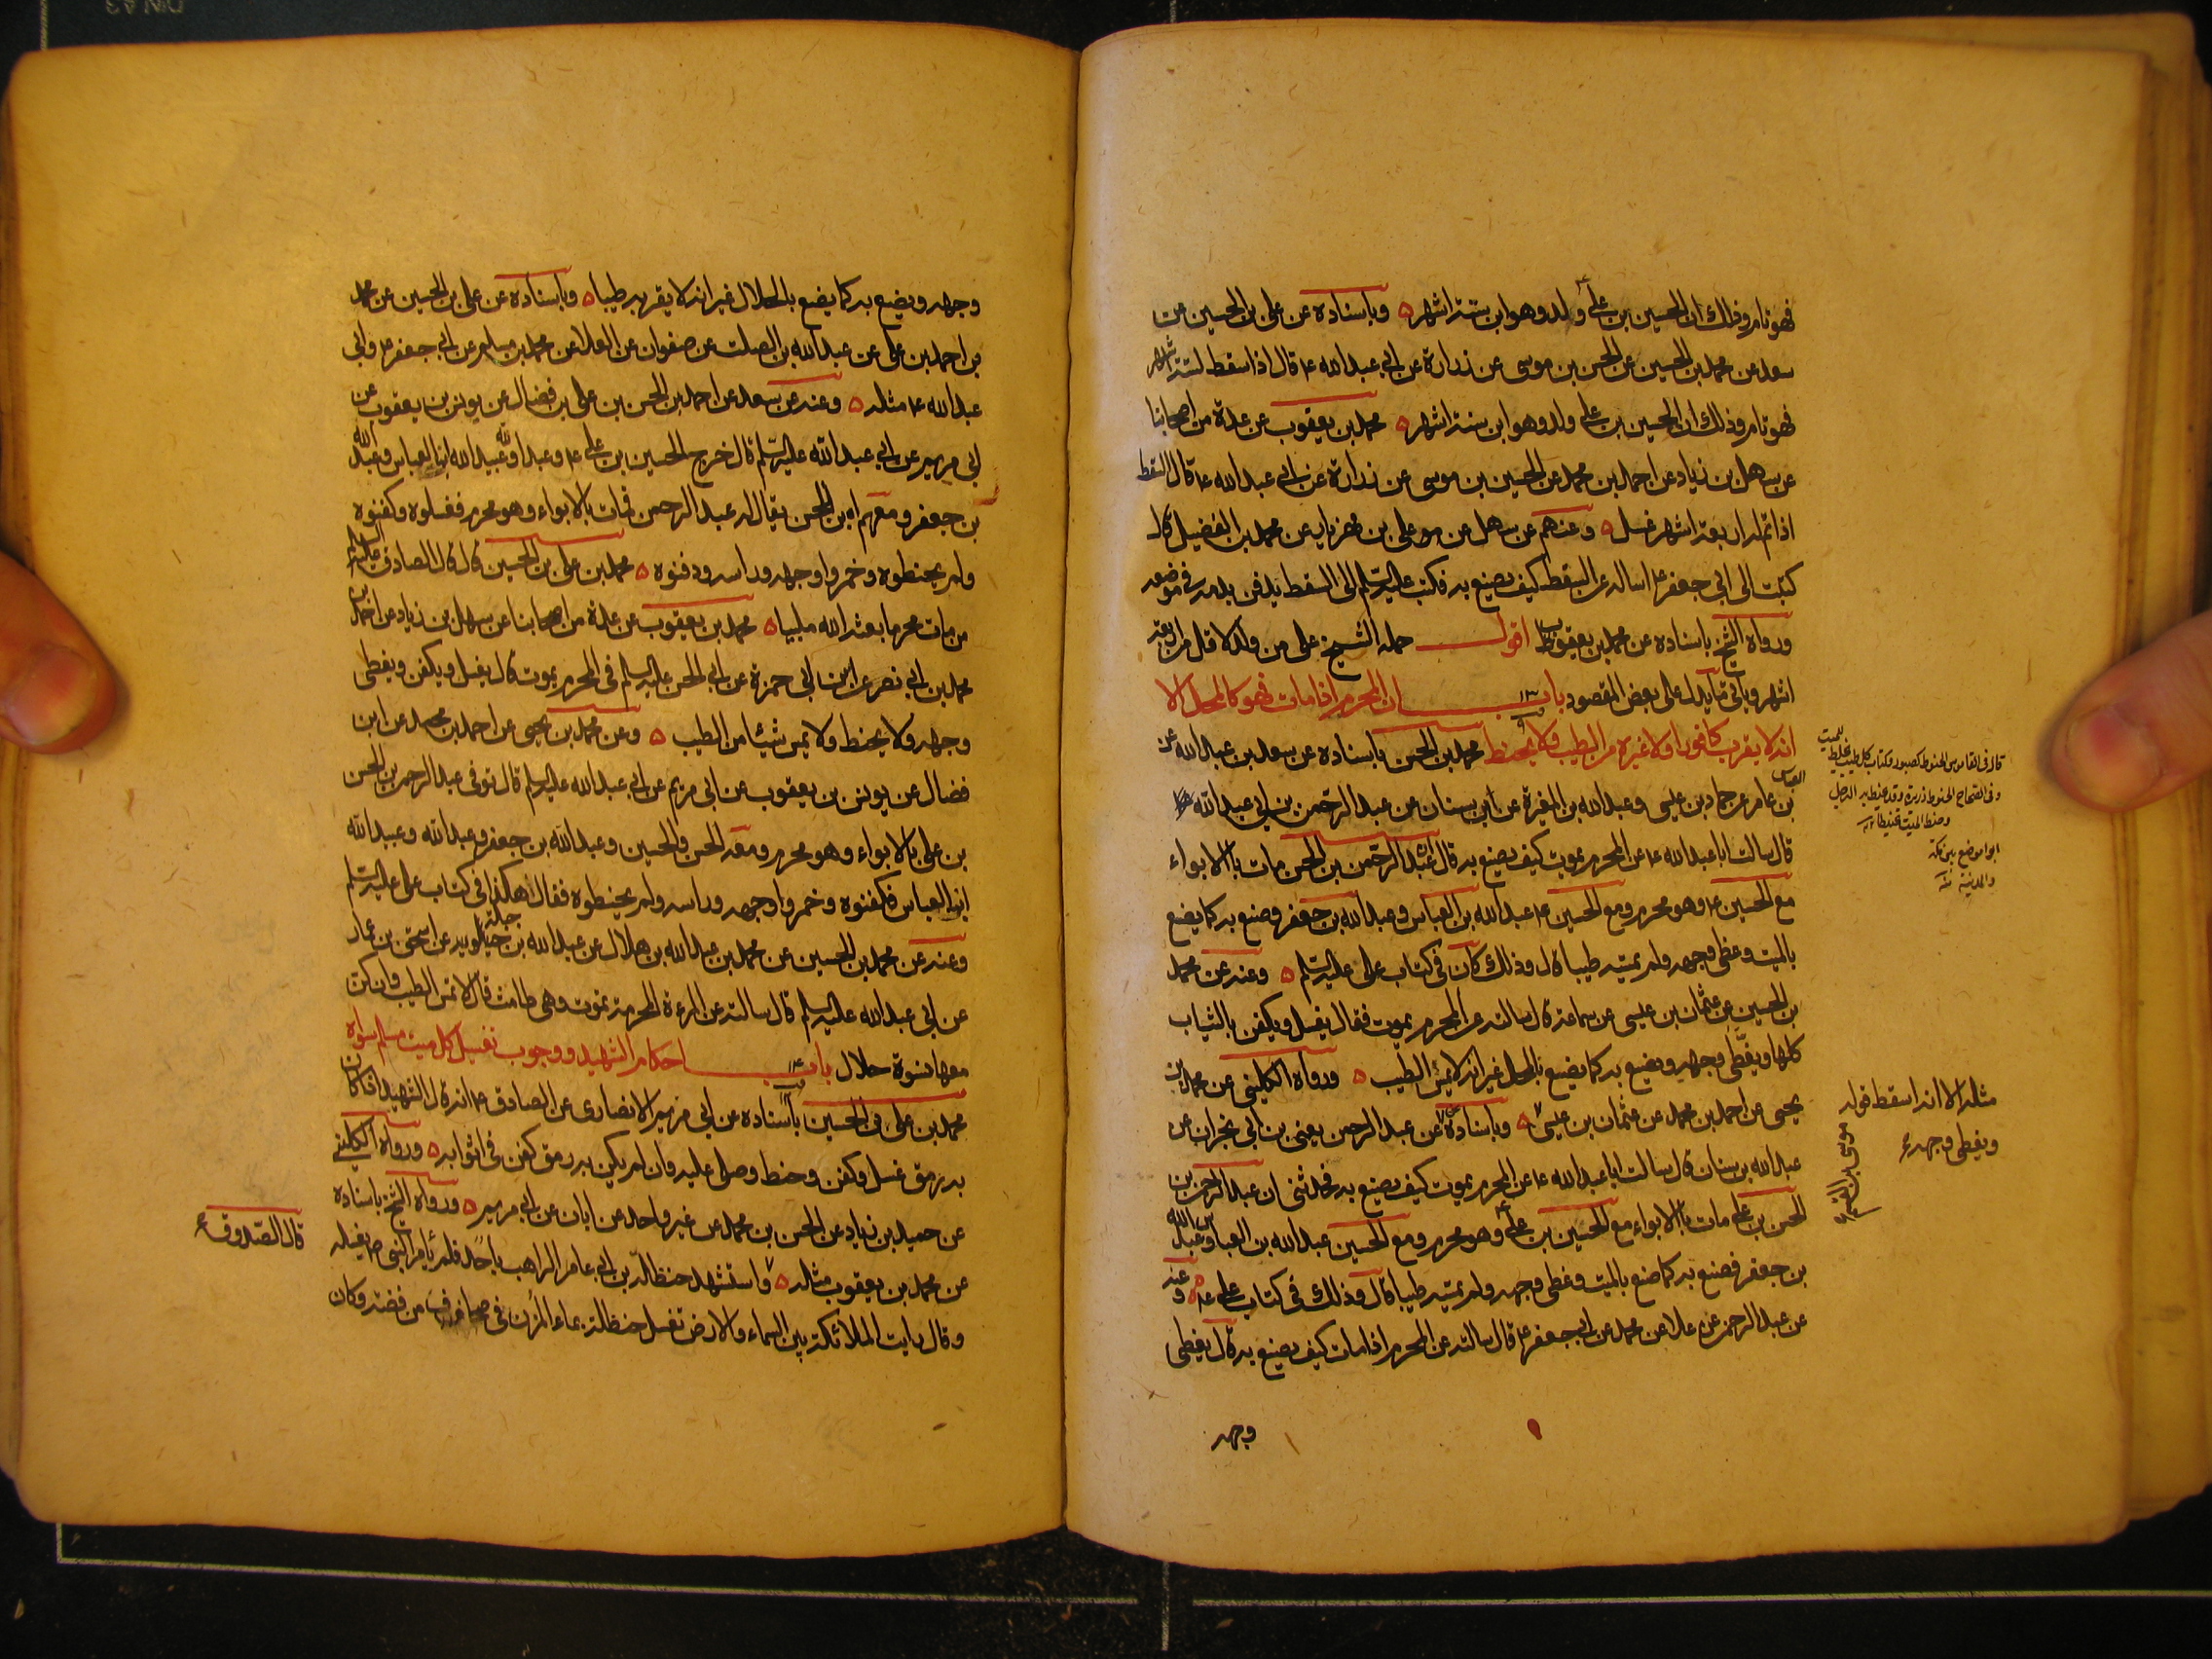 فهو تام وذلك ان الحسين بن علي ع ولد وهو ابن ستة اشهر ه وباسناده عن علي بن الحسين عن
سعد عن محمد بن الحسين عن الحسن بن موسى عن زرارة عن ابي عبد الله ع قال اذا سقط لستة اشهر
فهو تام وذلك ان الحسين بن علي ولد وهو ابن ستة اشهر ه محمد بن يعقوب عن عدة من اصحابنا
عن سهل بن زياد عن احمد بن محمد عن الحسين بن موسى عن زرارة عن ابي عبد الله ع قال السقط
اذا تم له اربعة اشهر غسل ه وعنهم عن سهل عن علي بن مهزيار عن محمد بن الفضيل قال
كتبت الى ابي جعفر ع اساله عن السقط كيف يصنع به فكتب عليه السلم الى السقط يدفن بدمه في موضعه
ورواه الشيخ باسناده عن محمد بن يعقوب اقول حمله الشيخ على من ولد لاقل من اربعة
اشهر وياتي ما يدل على بعض المقصود باب ١٣ ان المحرم اذا مات فهو كالمحل الا
انه لا يقرب كافورا ولا غيره من الطيب ولا يحنط محمد بن الحسن باسناده عن سعد بن عبد الله عن العباس
بن عامر عن حماد بن عيسى وعبد الله بن المغيرة عن ابن سنان عن عبد الرحمن بن ابي عبد الله
قال سالت ابا عبد الله ع عن المحرم يموت كيف يصنع به قال ان عبد الرحمن بن الحسن مات بالابواء
مع الحسين ع وهو محرم ومع الحسين ع عبد الله بن العباس وعبد الله بن جعفر وصنع به كما يصنع
بالميت وغطى وجهه ولم يمسه طيبا قال وذلك كان في كتاب علي عليه السلم ه وعنه عن محمد
بن الحسين عن عثمان بن عيسى عن سماعة قال سالته عن المحرم يموت فقال يغسل ويكفن بالثياب
كلها ويغطى وجهه ويصنع به كما يصنع بالمحل غير انه لا يمس الطيب ه ورواه الكليني عن محمد بن
يحيى عن احمد بن محمد عن عثمان بن عيسى ه وباسناده عن عبد الرحمن يعني بن ابي نجران عن
عبد الله بن سنان قال سالت ابا عبد الله ع عن المحرم يموت كيف يصنع به فحدثني ان عبد الرحمن بن
الحسن بن علي مات بالابواء مع الحسين بن علي ع وهو محرم ومع الحسين عبد الله بن العباس وعبد الله
بن جعفر فصنع به كما صنع بالميت وغطى وجهه ولم يمسه طيبا قال وذلك في كتاب علي ع ه وعنه
عن عبد الرحمن عن علا عن محمد عن ابي جعفر ع قال سالته عن المحرم اذا مات كيف يصنع به قال يغطى
وجهه
قال في القاموس الحنوط كصبور وكتاب كل طيب يخلط للميت
وفي الصحاح الحنوط ذريرة وقد تحنط به الرجل
وحنط الميت تحنيطا
ابوا موضع بين مكة
والمدينة
مثله الا انه اسقط قوله
ويغطى وجهه
موسى بن القسم
وجهه ويصنع به كما يصنع بالحلال غير انه لا يقربه طيبا ه وباسناده عن علي بن الحسين عن محمد
بن احمد بن علي عن عبد الله بن الصلت عن صفوان عن العلا عن محمد بن مسلم عن ابي جعفر ع وابي
عبد الله ع مثله ه وعنه عن سعد عن احمد بن الحسن بن علي بن فضال عن يونس بن يعقوب عن
ابي مريم عن ابي عبد الله عليه السلم قال خرج الحسين بن علي ع وعبد الله وعبيد الله ابنا العباس وعبد الله
بن جعفر ومعهم ابن الحسن يقال له عبد الرحمن فمات بالابواء وهو محرم فغسلوه وكفنوه
ولم يحنطوه وخمروا وجهه وراسه ودفنوه ه محمد بن علي بن الحسين قال قال الصادق عليه السلم
من مات محرما بعثه الله ملبيا ه محمد بن يعقوب عن عدة من اصحابنا عن سهل بن زياد عن احمد بن
محمد بن ابي نصر عن ابن ابي حمزة عن ابي الحسن عليه السلم في المحرم يموت قال يغسل ويكفن ويغطى
وجهه ولا يحنط ولا يمس شيئا من الطيب ه وعن محمد بن يحيى عن احمد بن محمد عن ابن
فضال عن يونس بن يعقوب عن ابي مريم عن ابي عبد الله عليه السلم قال توفى عبد الرحمن بن الحسن
بن علي بالابواء وهو محرم ومعه الحسن والحسين وعبد الله بن جعفر وعبد الله وعبيد الله
ابنا العباس فكفنوه وخمروا وجهه وراسه ولم يحنطوه فقال هكذا في كتاب علي عليه السلم
وعنه عن محمد بن الحسين عن محمد بن عبد الله بن هلال عن عبد الله بن جبلة عن اسحق بن عمار
عن ابي عبد الله عليه السلم قال سالته عن المرءة المحرمة تموت وهي طامث قال لا تمس الطيب وان كن
معها نسوة حلال باب ١٤ احكام الشهيد ووجوب تغسيل كل ميت مسلم سواه
محمد بن علي بن الحسين باسناده عن ابي مريم الانصارى عن الصادق ع انه قال الشهيد اذا كان
به رمق غسل وكفن وحنط وصلى عليه وان لم يكن به رمق كفن في اثوابه ه ورواه الكليني
عن حميد بن زياد عن الحسن بن محمد عن غير واحد عن ابان عن ابي مريم ه ورواه الشيخ باسناده
عن محمد بن يعقوب مثله ه واستشهد حنظلة بن ابي عامر الراهب باحد فلم يامر النبي ص بغسله
وقال رايت الملائكة بين السماء والارض تغسل حنظلة بماء المزن في صحاف من فضة وكان
قال الصدوق